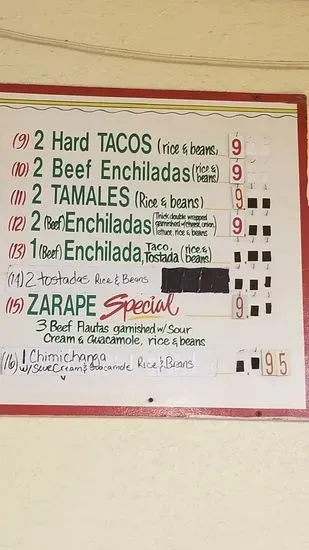 (9) 2 Hard TACOS (rice & beans) 9
(10) 2 Beef Enchiladas (rice & beans) 9
(11) 2 TAMALES (Rice & beans) 9
(12) 2 (Beef) Enchiladas (Thick double wrapped garnished w/cheese, onion, lettuce, rice & beans) 9
(13) 1 (Beef) Enchilada, Taco, Tostada (rice & beans)
(14) 2 tostadas Rice & Beans
(15) ZARAPE Special 9
3 Beef Flautas garnished w/ Sour
Cream & Guacamole, rice & beans
(16) 1 Chimichanga
w/ Sour Cream & Guacamole Rice & Beans 95